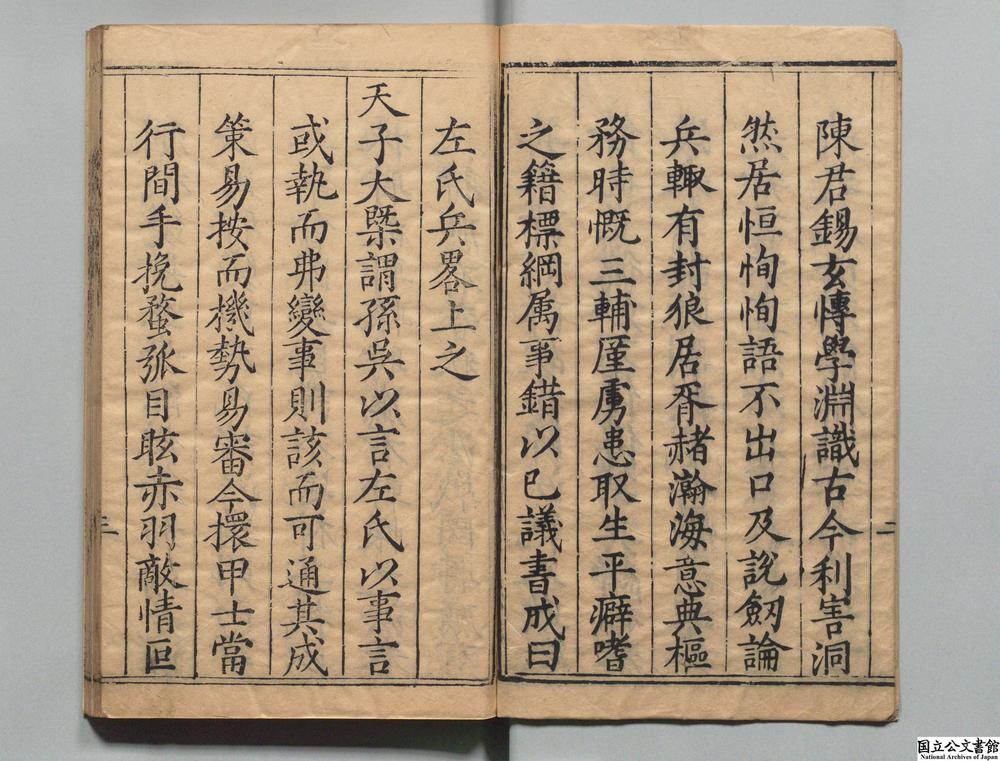 陳君錫玄慱學淵識古今利害洞
然居恒恂恂語不出口及說劒論
兵輙有封狼居胥赭瀚海意典樞
務時慨三輔厪虜患取生平癖嗜
之籍標綱属事錯以已議書成曰
二
左氏兵畧上之
天子大槩謂孫吳以言左氏以事言
或執而弗變事則該而可通其成
策易按而機勢易審今擐甲士當
行間手挽蝥弧目眩赤羽敵情叵
三
国立公文書館
National Archives of Japan